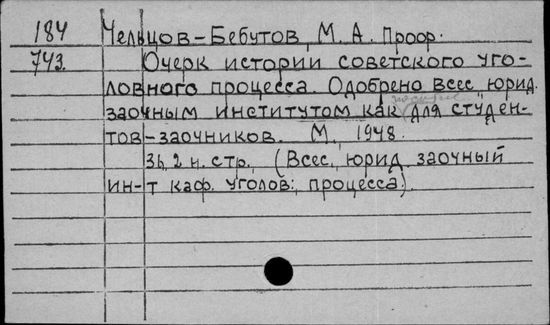 184 Чельцов-Бебутов, М. А. Проф.
743. Очерк истории советского уго-
ловного процесса. Одобрено всес. юрид.
заочным институтом как для студен-
тов-заочников. М., 1948.
36, 2 н. стр. (Всес. юрид. заочный
ин-т каф. уголов. процесса).